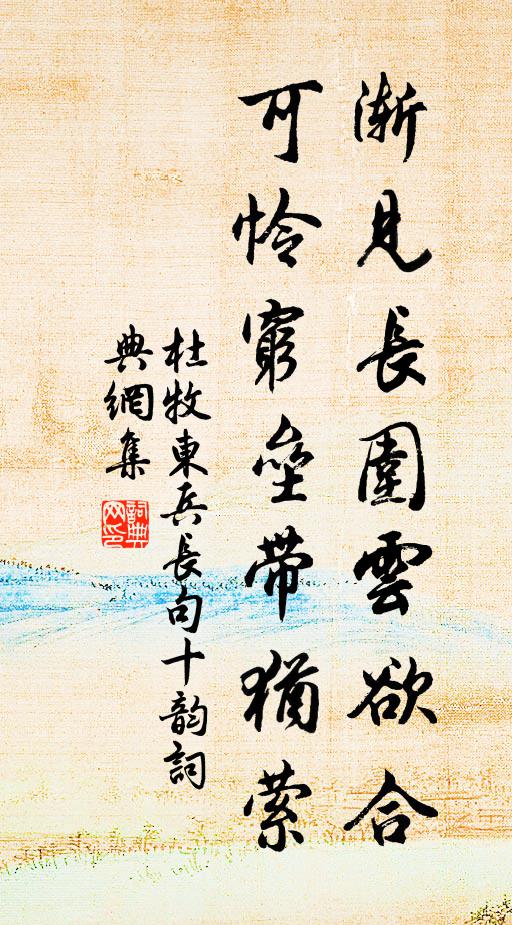 漸見長圍雲欲合
可憐窮壘帶猶縈
杜牧東兵長句十韵詞
典網集
詞典
网印